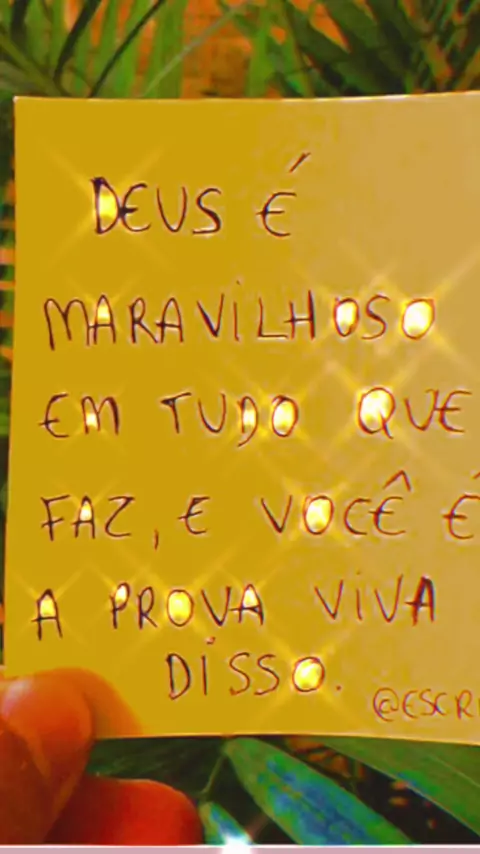 DEUS É
MARAViLHOSO
EM TUDO QUE
FAZ, E VOCÊ É
A PROVA ViVA
DiSSO.